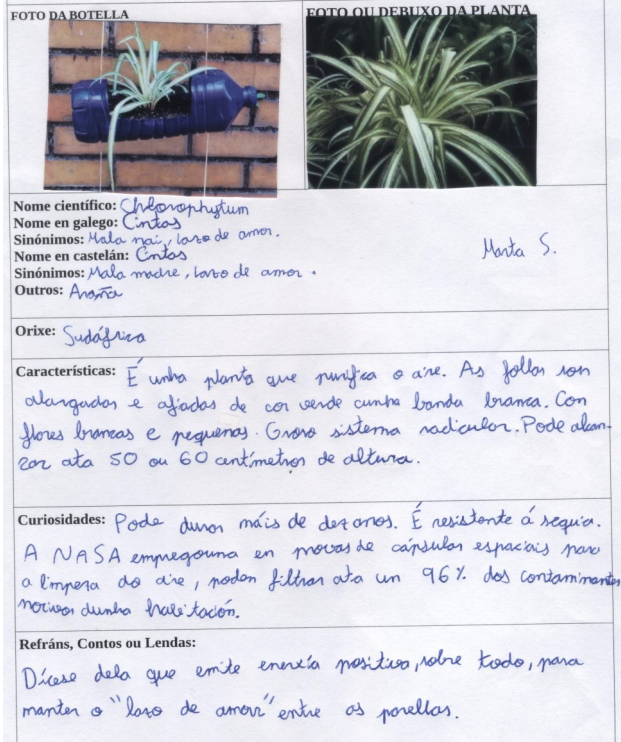 FOTO DA BOTELLA
FOTO OU DEBUXO DA PLANTA
Nome científico: Chlorophytum
Nome en galego: Cintas
Sinónimos: Mala nai, lazo de amor.
Nome en castelán: Cintas
Sinónimos: Mala madre, lazo de amor.
Outros: Araña
Marta S.
Orixe: Sudáfrica
Características: É unha planta que purifica o aire. As follas son
alargadas e afiadas de cor verde cunha banda branca. Con
flores brancas e pequenas. Groso sistema radicular. Pode alcan-
zar ata 50 ou 60 centímetros de altura.
Curiosidades: Pode durar máis de dez anos. É resistente á sequía.
A NASA empregouna en probas de cápsulas espaciais para
a limpeza do aire, poden filtrar ata un 96% dos contaminantes
nocivos dunha habitación.
Refráns, Contos ou Lendas:
Dícese dela que emite enerxía positiva, sobre todo, para
manter o "lazo de amor" entre as parellas.